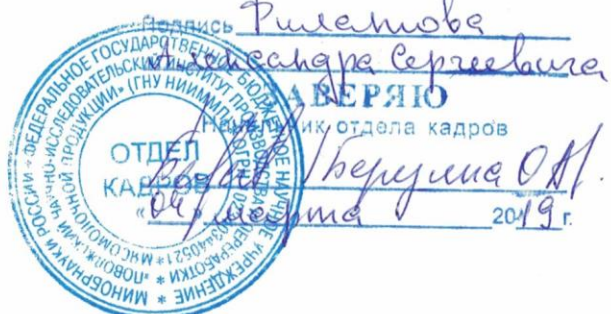 Подпись Филатова
Александра Сергеевича
ЗАВЕРЯЮ
Начальник отдела кадров
Берулина О.А.
«04» марта 2019 г.
ОТДЕЛ
КАДРОВ
МИНОБРНАУКИ РОССИИ * ФЕДЕРАЛЬНОЕ ГОСУДАРСТВЕННОЕ БЮДЖЕТНОЕ НАУЧНОЕ УЧРЕЖДЕНИЕ *
"ПОВОЛЖСКИЙ НАУЧНО-ИССЛЕДОВАТЕЛЬСКИЙ ИНСТИТУТ ПРОИЗВОДСТВА И ПЕРЕРАБОТКИ
МЯСОМОЛОЧНОЙ ПРОДУКЦИИ" (ГНУ НИИММП